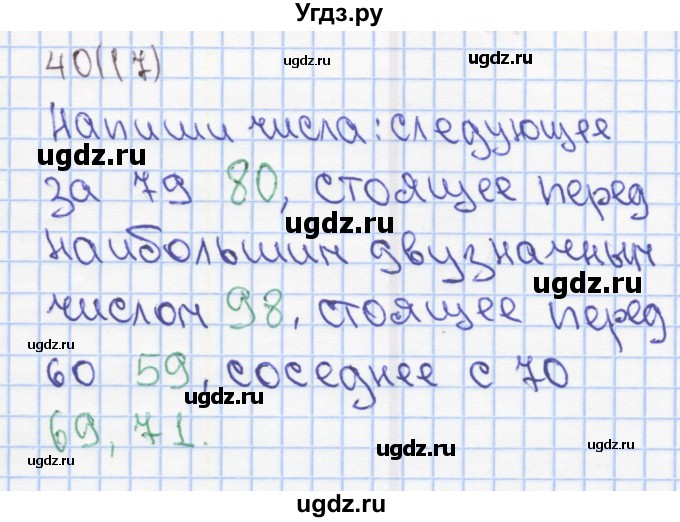 Угдз.ру
40(17)
ugdz.ru
ugdz.ru
Напиши числа: следующее
ugdz.ru
за 79 80, стоящее перед
ugdz.ru
наибольшим двузначным
ugdz.ru
числом 98, стоящее перед
ugdz.ru
ugdz.ru
60 59, соседнее с 70
ugdz.ru
69, 71.
ugdz.ru
ugdz.ru
ugdz.ru
ugdz.ru